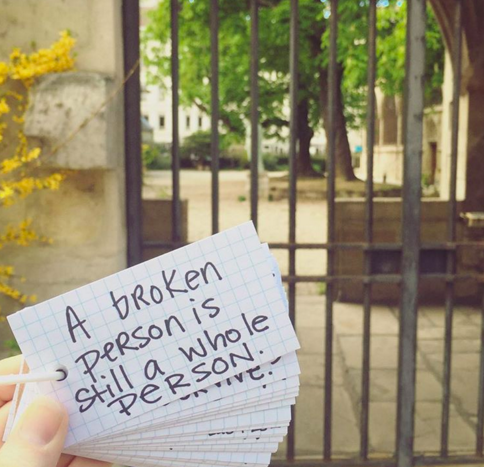 A broken
person is
still a whole
person.